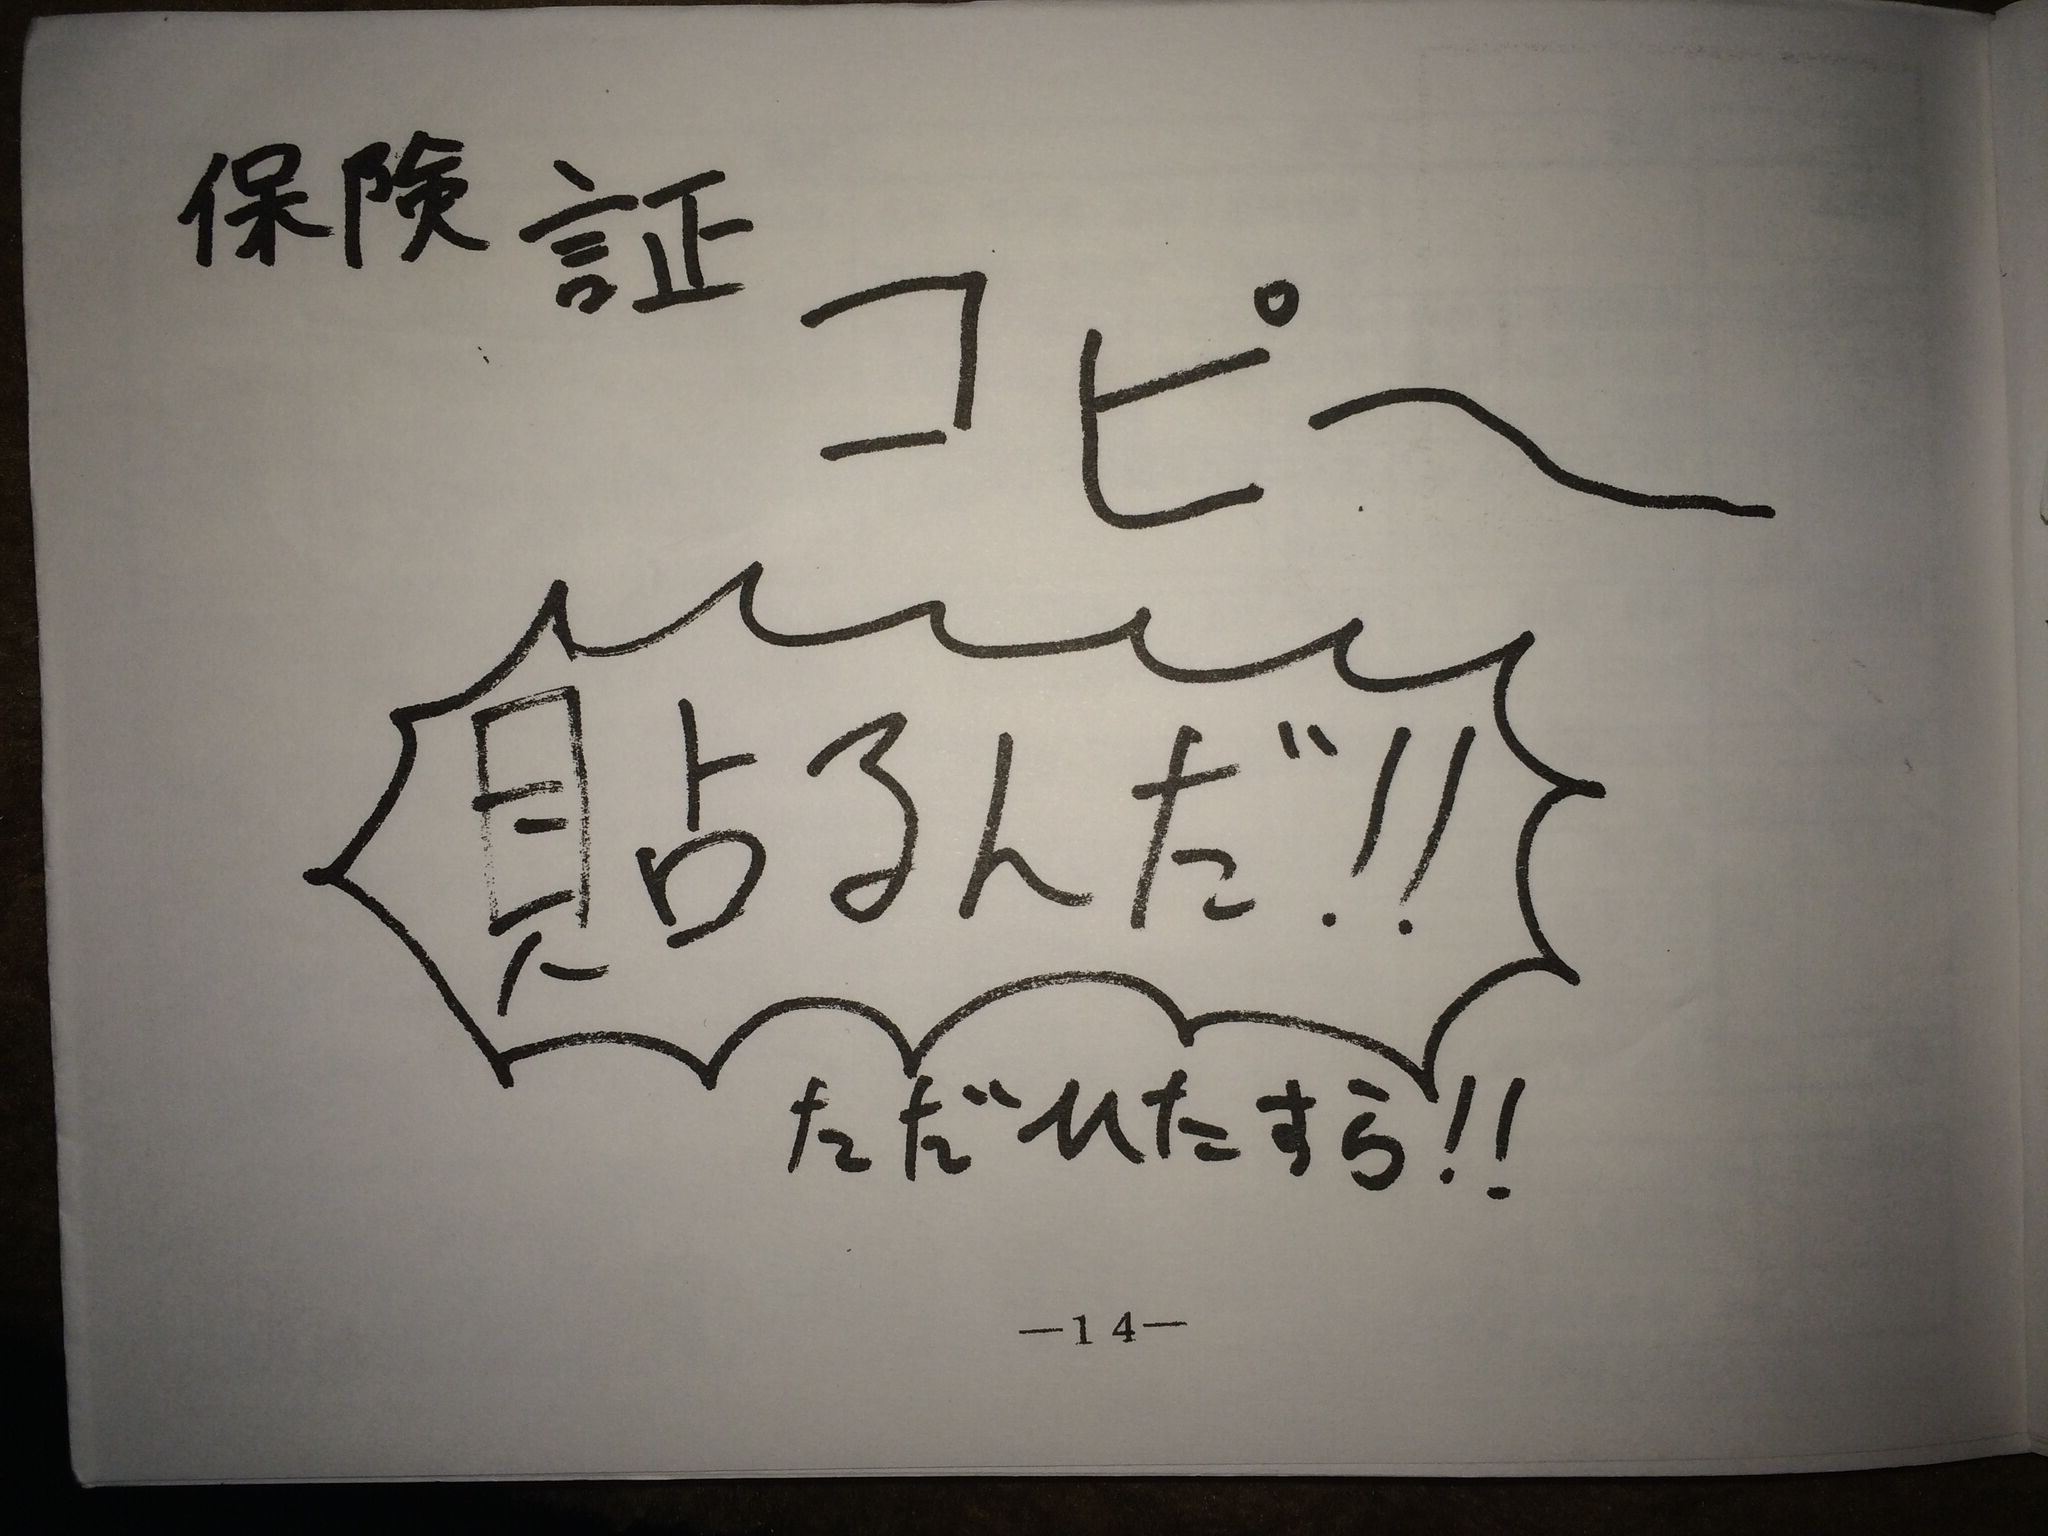 保険証
コピー
貼るんだ!!
ただひたすら!!
—14—